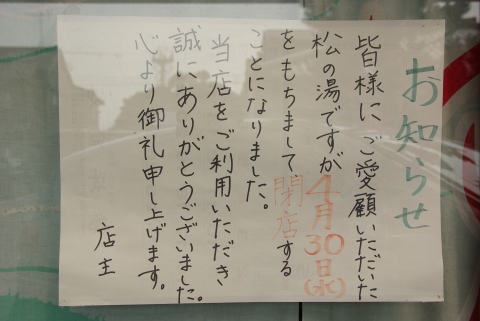 お知らせ
皆様にご愛顧いただいた
松の湯ですが4月30日(水)
をもちまして、閉店する
ことになりました。
当店をご利用いただき
誠にありがとうございました。
心より御礼申し上げます。
店主